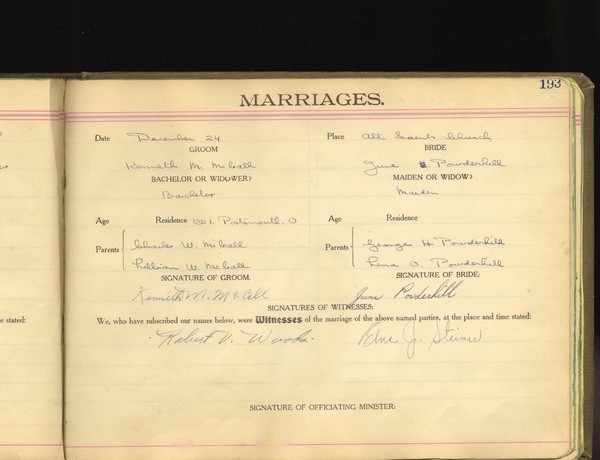 193
MARRIAGES.
Date December 24 Place All Saints Church
GROOM BRIDE
Kenneth M. McCall June Powderhill
BACHELOR OR WIDOWER? MAIDEN OR WIDOW?
Bachelor Maiden
Age Residence Rd 1. Portsmouth. O Age Residence
Parents Charles W. McCall Parents George H. Powderhill
Lillian W. McCall Lena O. Powderhill
SIGNATURE OF GROOM. SIGNATURE OF BRIDE:
Kenneth M. McCall June Powderhill
SIGNATURES OF WITNESSES:
e stated: We, who have subscribed our names below, were Witnesses of the marriage of the above named parties, at the place and time stated:
Robert V. Woods. J. Steiner
SIGNATURE OF OFFICIATING MINISTER: